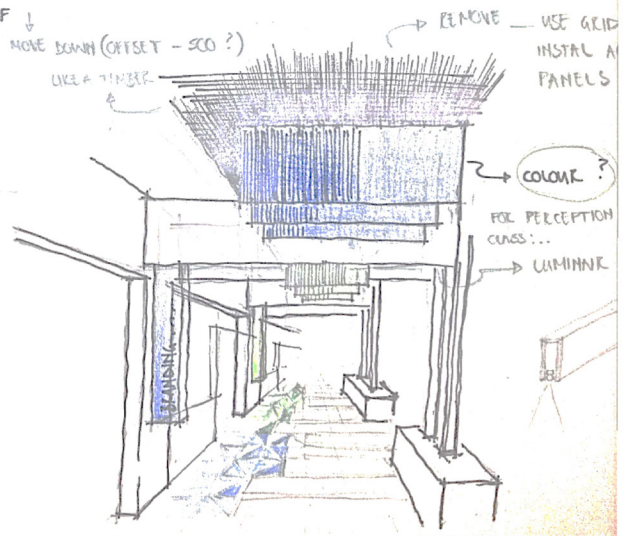 F
MOVE DOWN (OFFSET - 500 ?)
LIKE A TIMBER
REMOVE — USE GRID
INSTAL A
PANELS
COLOUR ?
FOR PERCEPTION
CLASS:...
LUMINAR
BRANDING......